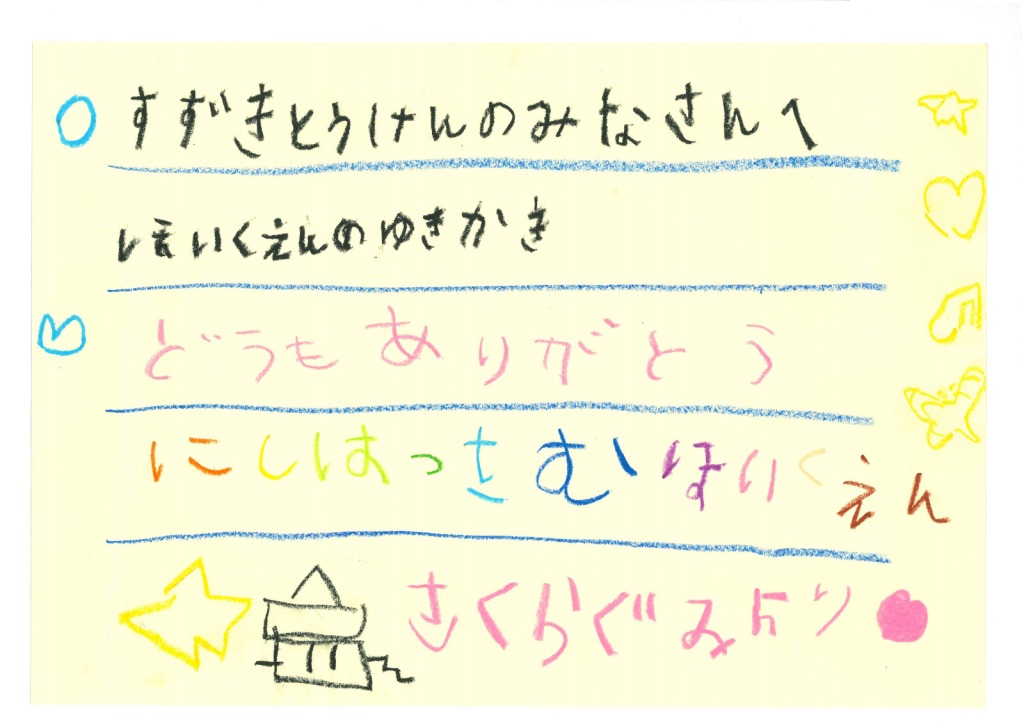 すずきとうけんのみなさんへ
ほいくえんのゆきかき
どうもありがとう
にしはっさむほいくえん
さくらぐみより